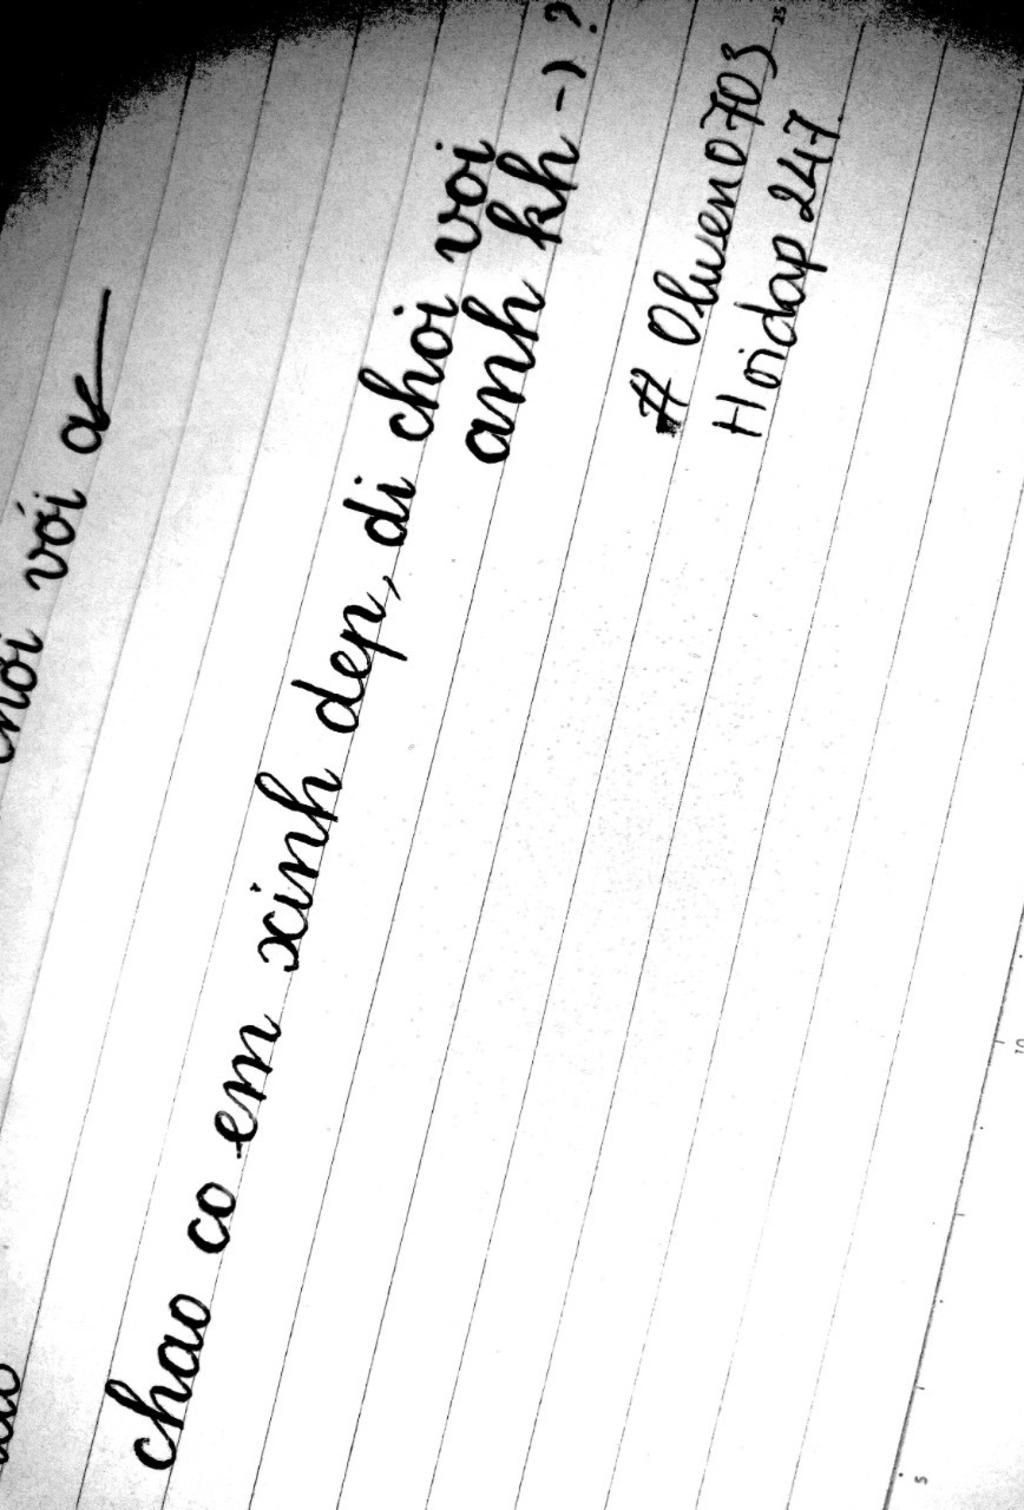 với a
chao co em xinh dep, di choi voi
anh kh -) ?
# Olwen0703
Hoidap 247
25
10
5